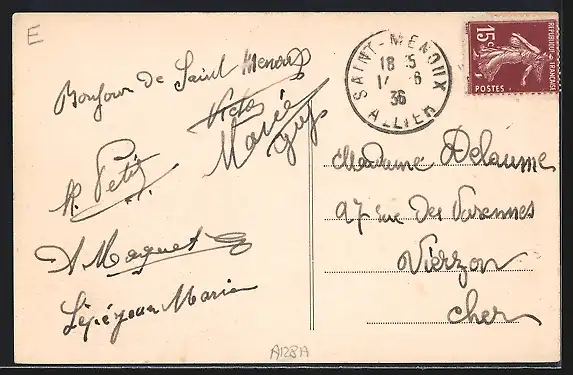 E
Bonjour de Saint Menoux
Marcé
Guy
R. Petit
A Maquet
Marie
SAINT-MENOUX
18 15
ALLIER
36
15c
REPUBLIQUE FRANÇAISE
POSTES
Madame Delaume
97 rue Des Varennes
Vierzon
Cher
A128A